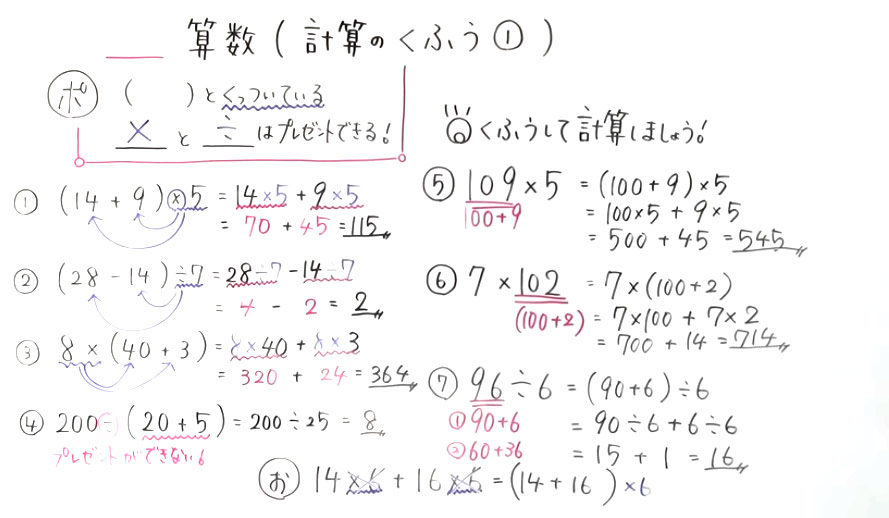 算数(計算のくふう①)
ポ ( )とくっついている
×と÷はプレゼントできる!
① (14+9)×5=14×5+9×5
=70+45=115
② (28-14)÷7=28÷7-14÷7
=4-2=2
③ 8×(40+3)=8×40+8×3
=320+24=364
④ 200÷(20+5)=200÷25=8
プレゼントができない!
くふうして計算しましょう!
⑤ 109×5=(100+9)×5
100+9
=100×5+9×5
=500+45=545
⑥ 7×102=7×(100+2)
(100+2)
=7×100+7×2
=700+14=714
⑦ 96÷6=(90+6)÷6
①90+6
=90÷6+6÷6
②60+36
=15+1=16
お 14×6+16×6=(14+16)×6